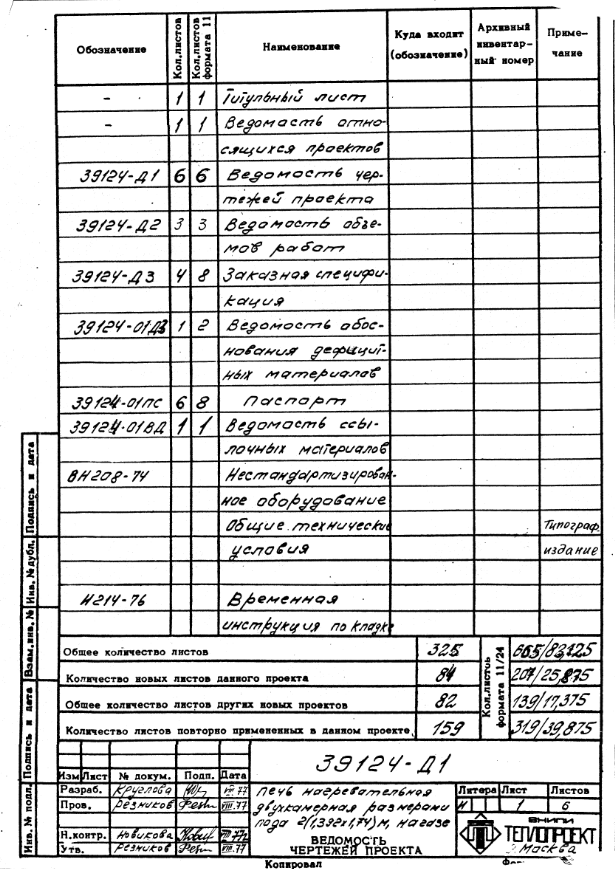 Обозначение Кол.листов Кол.листов формата 11 Наименование Куда входит (обозначение) Архивный инвентарный номер Примечание
- 1 1 Титульный лист
- 1 1 Ведомость отно-
сящихся проектов
39124-Д1 6 6 Ведомость чер-
тежей проекта
39124-Д2 3 3 Ведомость объе-
мов работ
39124-Д3 4 8 Заказная специфи-
кация
39124-01Д3 1 2 Ведомость обос-
нования дефицит-
ных материалов
39124-01ПС 6 8 Паспорт
39124-01ВД 1 1 Ведомость ссы-
лочных материалов
ВН208-74 Нестандартизирован-
ное оборудование
Общие технические Типограф.
условия издание
И214-76 Временная
инструкция по кладке
Общее количество листов 325 665/83,125
Количество новых листов данного проекта 84 207/25,875
Общее количество листов других новых проектов 82 139/17,375
Количество листов повторно примененных в данном проекте 159 319/39,875
Кол.листов формата 11/24
39124-Д1
Изм Лист № докум. Подп. Дата
Разраб. Круглова VIII.77
Пров. Резников VIII.77
Н.контр. Новикова
Утв. Резников VIII.77
Печь нагревательная
двухкамерная размерами
пода 2(1,392х1,74)м, на газе
ВЕДОМОСТЬ
ЧЕРТЕЖЕЙ ПРОЕКТА
Литера Лист Листов
И 1 6
ВНИПИ
ТЕПЛОПРОЕКТ
г. Москва
Копировал
Инв. № подл. Подпись и дата Взам.инв. № Инв. № дубл. Подпись и дата